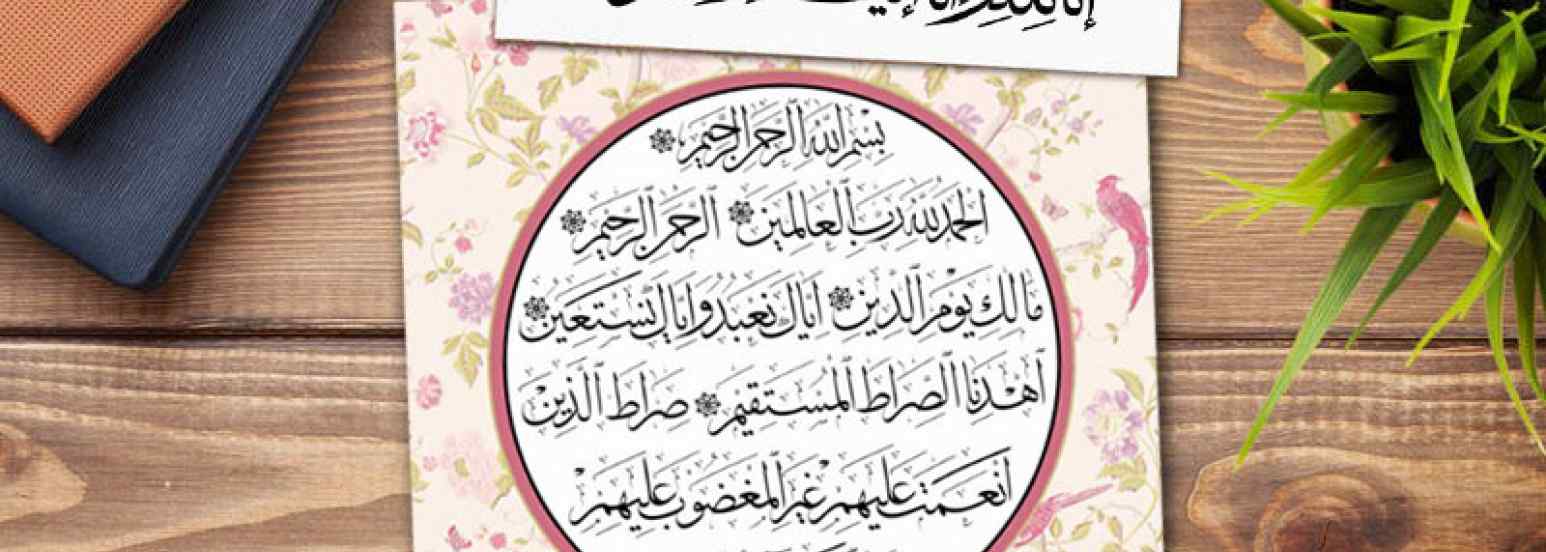 إنا لله وإنا إليه
بِسْمِ اللَّهِ الرَّحْمَنِ الرَّحِيمِ
الْحَمْدُ لِلَّهِ رَبِّ الْعَالَمِينَ ۞ الرَّحْمَنِ الرَّحِيمِ ۞
مَالِكِ يَوْمِ الدِّينِ ۞ إِيَّاكَ نَعْبُدُ وَإِيَّاكَ نَسْتَعِينُ ۞
اهْدِنَا الصِّرَاطَ الْمُسْتَقِيمَ ۞ صِرَاطَ الَّذِينَ
أَنْعَمْتَ عَلَيْهِمْ غَيْرِ الْمَغْضُوبِ عَلَيْهِمْ